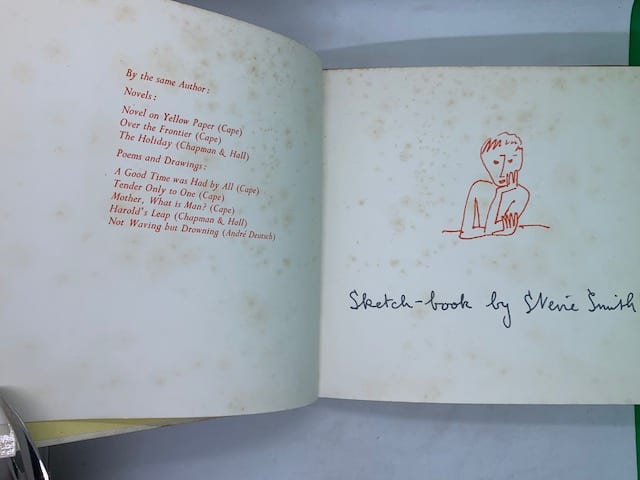 By the same Author:
Novels:
Novel on Yellow Paper (Cape)
Over the Frontier (Cape)
The Holiday (Chapman & Hall)
Poems and Drawings:
A Good Time was Had by All (Cape)
Tender Only to One (Cape)
Mother, What is Man? (Cape)
Harold's Leap (Chapman & Hall)
Not Waving but Drowning (André Deutsch)
Sketch-book by Stevie Smith